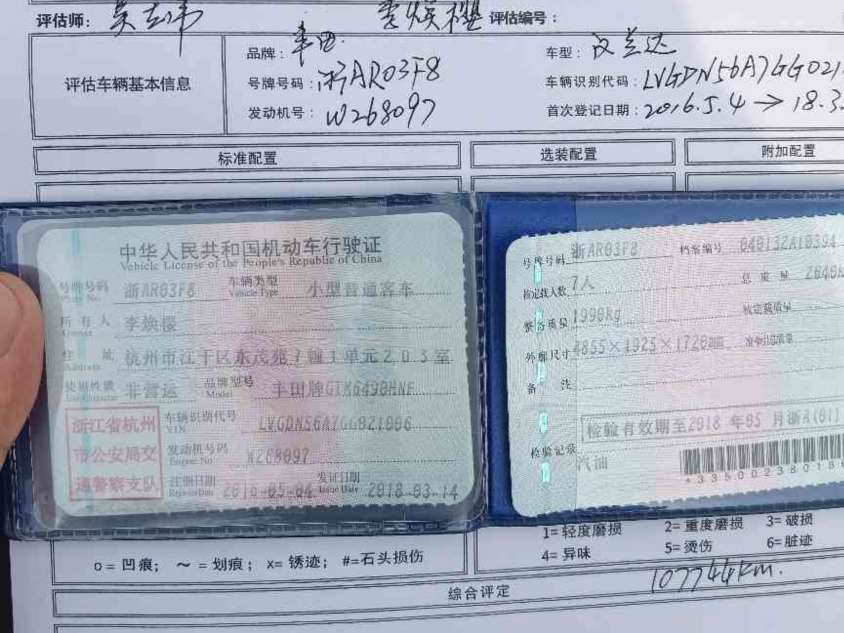 评估师： 评估编号：
评估车辆基本信息
品牌：丰田
车型：汉兰达
号牌号码：浙AR03F8
车辆识别代码：LVGDN56A7GG021
发动机号：W268097
首次登记日期：2016.5.4 → 18.3
标准配置
选装配置
附加配置
中华人民共和国机动车行驶证
Vehicle License of the People's Republic of China
号牌号码 浙AR03F8 车辆类型 小型普通客车
Plate No. Vehicle Type
所有人
Owner
住址 杭州市江干区东茂苑7幢1单元203室
Address
使用性质 非营运 品牌型号 丰田牌GTM6490HNF
Use Character Model
浙江省杭州市公安局交通警察支队
车辆识别代号 LVGDN56A7GG021006
VIN
发动机号码 W268097
Engine No
注册日期 2016-05-04 发证日期 2018-03-14
Register Date Issue Date
号牌号码 浙AR03F8 档案编号
核定载人数 7人 总质量
整备质量 1990kg 核定载质量
外廓尺寸 4855×1925×1720
备注
检验有效期至2018年05月浙A(01)
检验记录
汽油
o=凹痕； ～=划痕； x=锈迹； #=石头损伤
1=轻度磨损 2=重度磨损 3=破损
4=异味 5=烫伤 6=脏迹
综合评定
107744km.